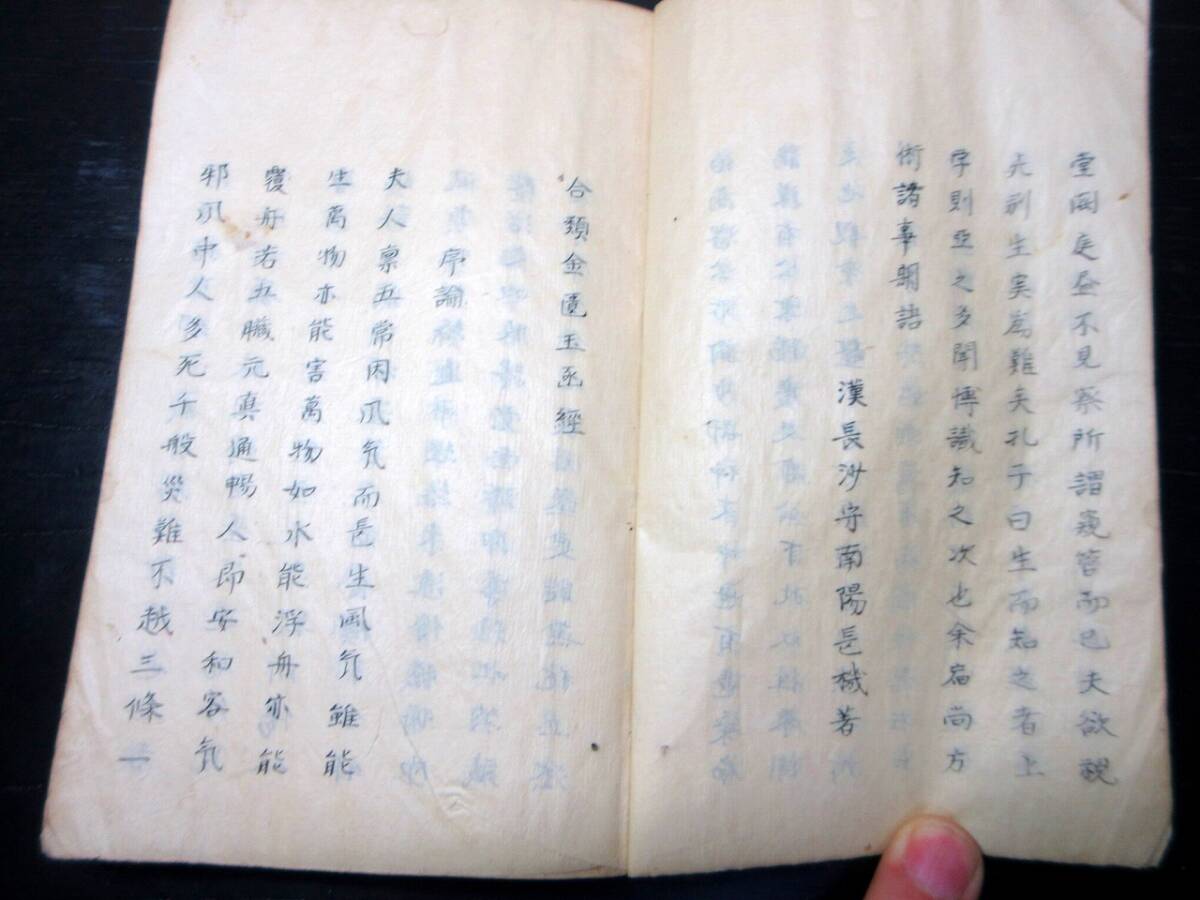 堂闕庭尽不見察所謂窺管而已夫欲視
夭別生実為難矣孔子曰生而知之者上
学則亜之多聞博識知之次也余宿尚方
術諸事斯語
漢長沙守南陽長機著
合類金匱玉函経
序論
夫人稟五常因風気而長生風気雖能
生萬物亦能害萬物如水能浮舟亦能
覆舟若五臓元真通暢人即安和客気
邪風中人多死千般災難不越三條一